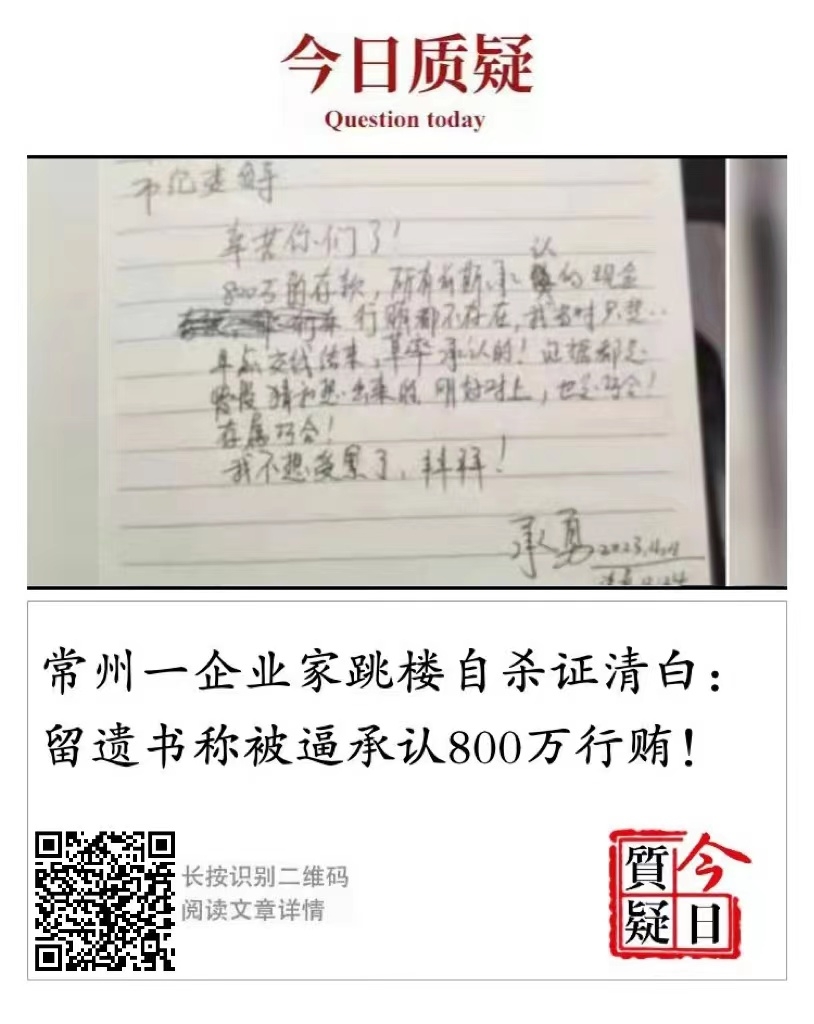 今日质疑
Question today
市纪委领导
辛苦你们了!
认
800万的存款,所有前期承的现金
行贿都不存在,我当时只想
早点交代结束,草率承认的!证据都是
慢慢猜和想出来的 刚好对上,也是巧合!
存属巧合!
我不想受累了,拜拜!
承勇 2023.4.4
常州一企业家跳楼自杀证清白:
留遗书称被逼承认800万行贿!
长按识别二维码
阅读文章详情
今日
質疑